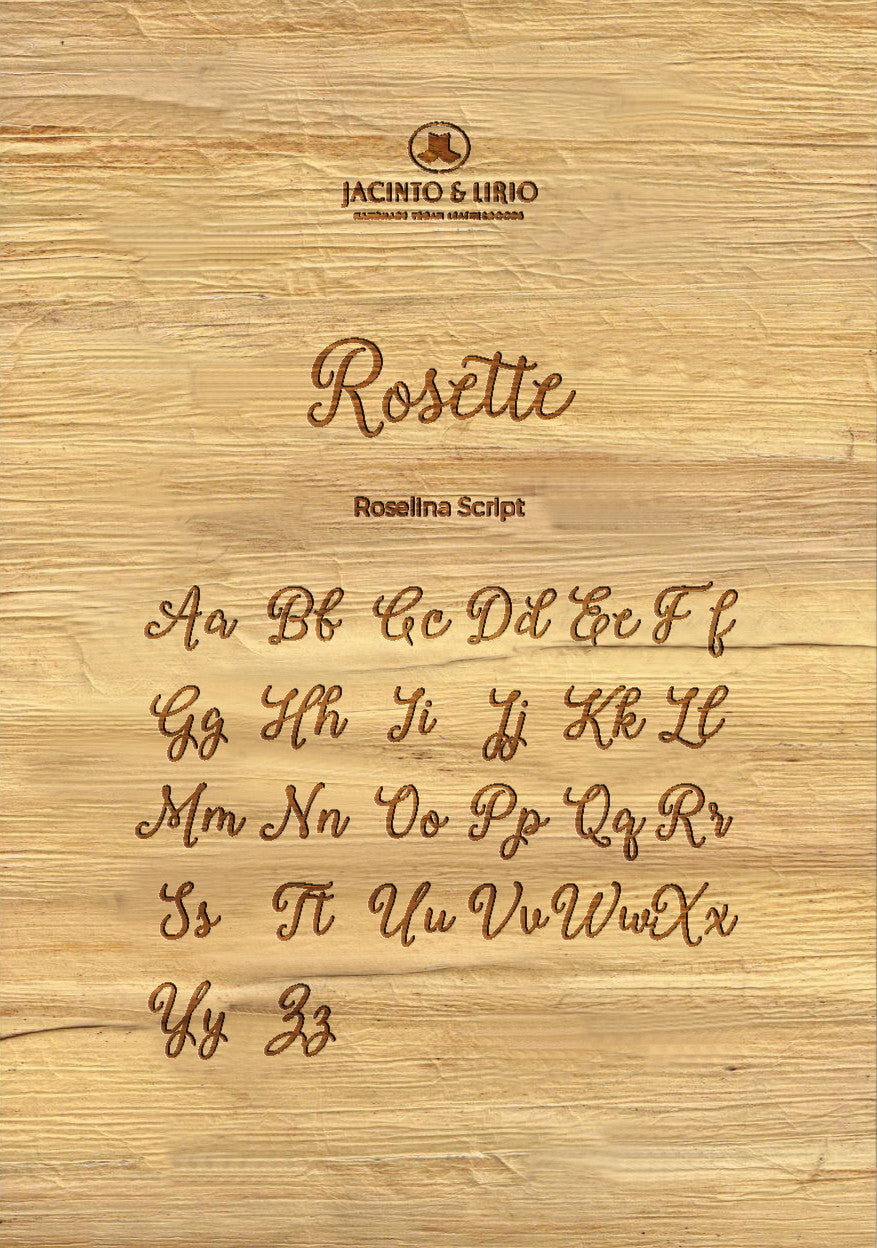 JACINTO & LIRIO
HANDMADE VEGAN LEATHER GOODS
Rosette
Roselina Script
Aa Bb Cc Dd Ee Ff
Gg Hh Ii Jj Kk Ll
Mm Nn Oo Pp Qq Rr
Ss Tt Uu Vv Ww Xx
Yy Zz